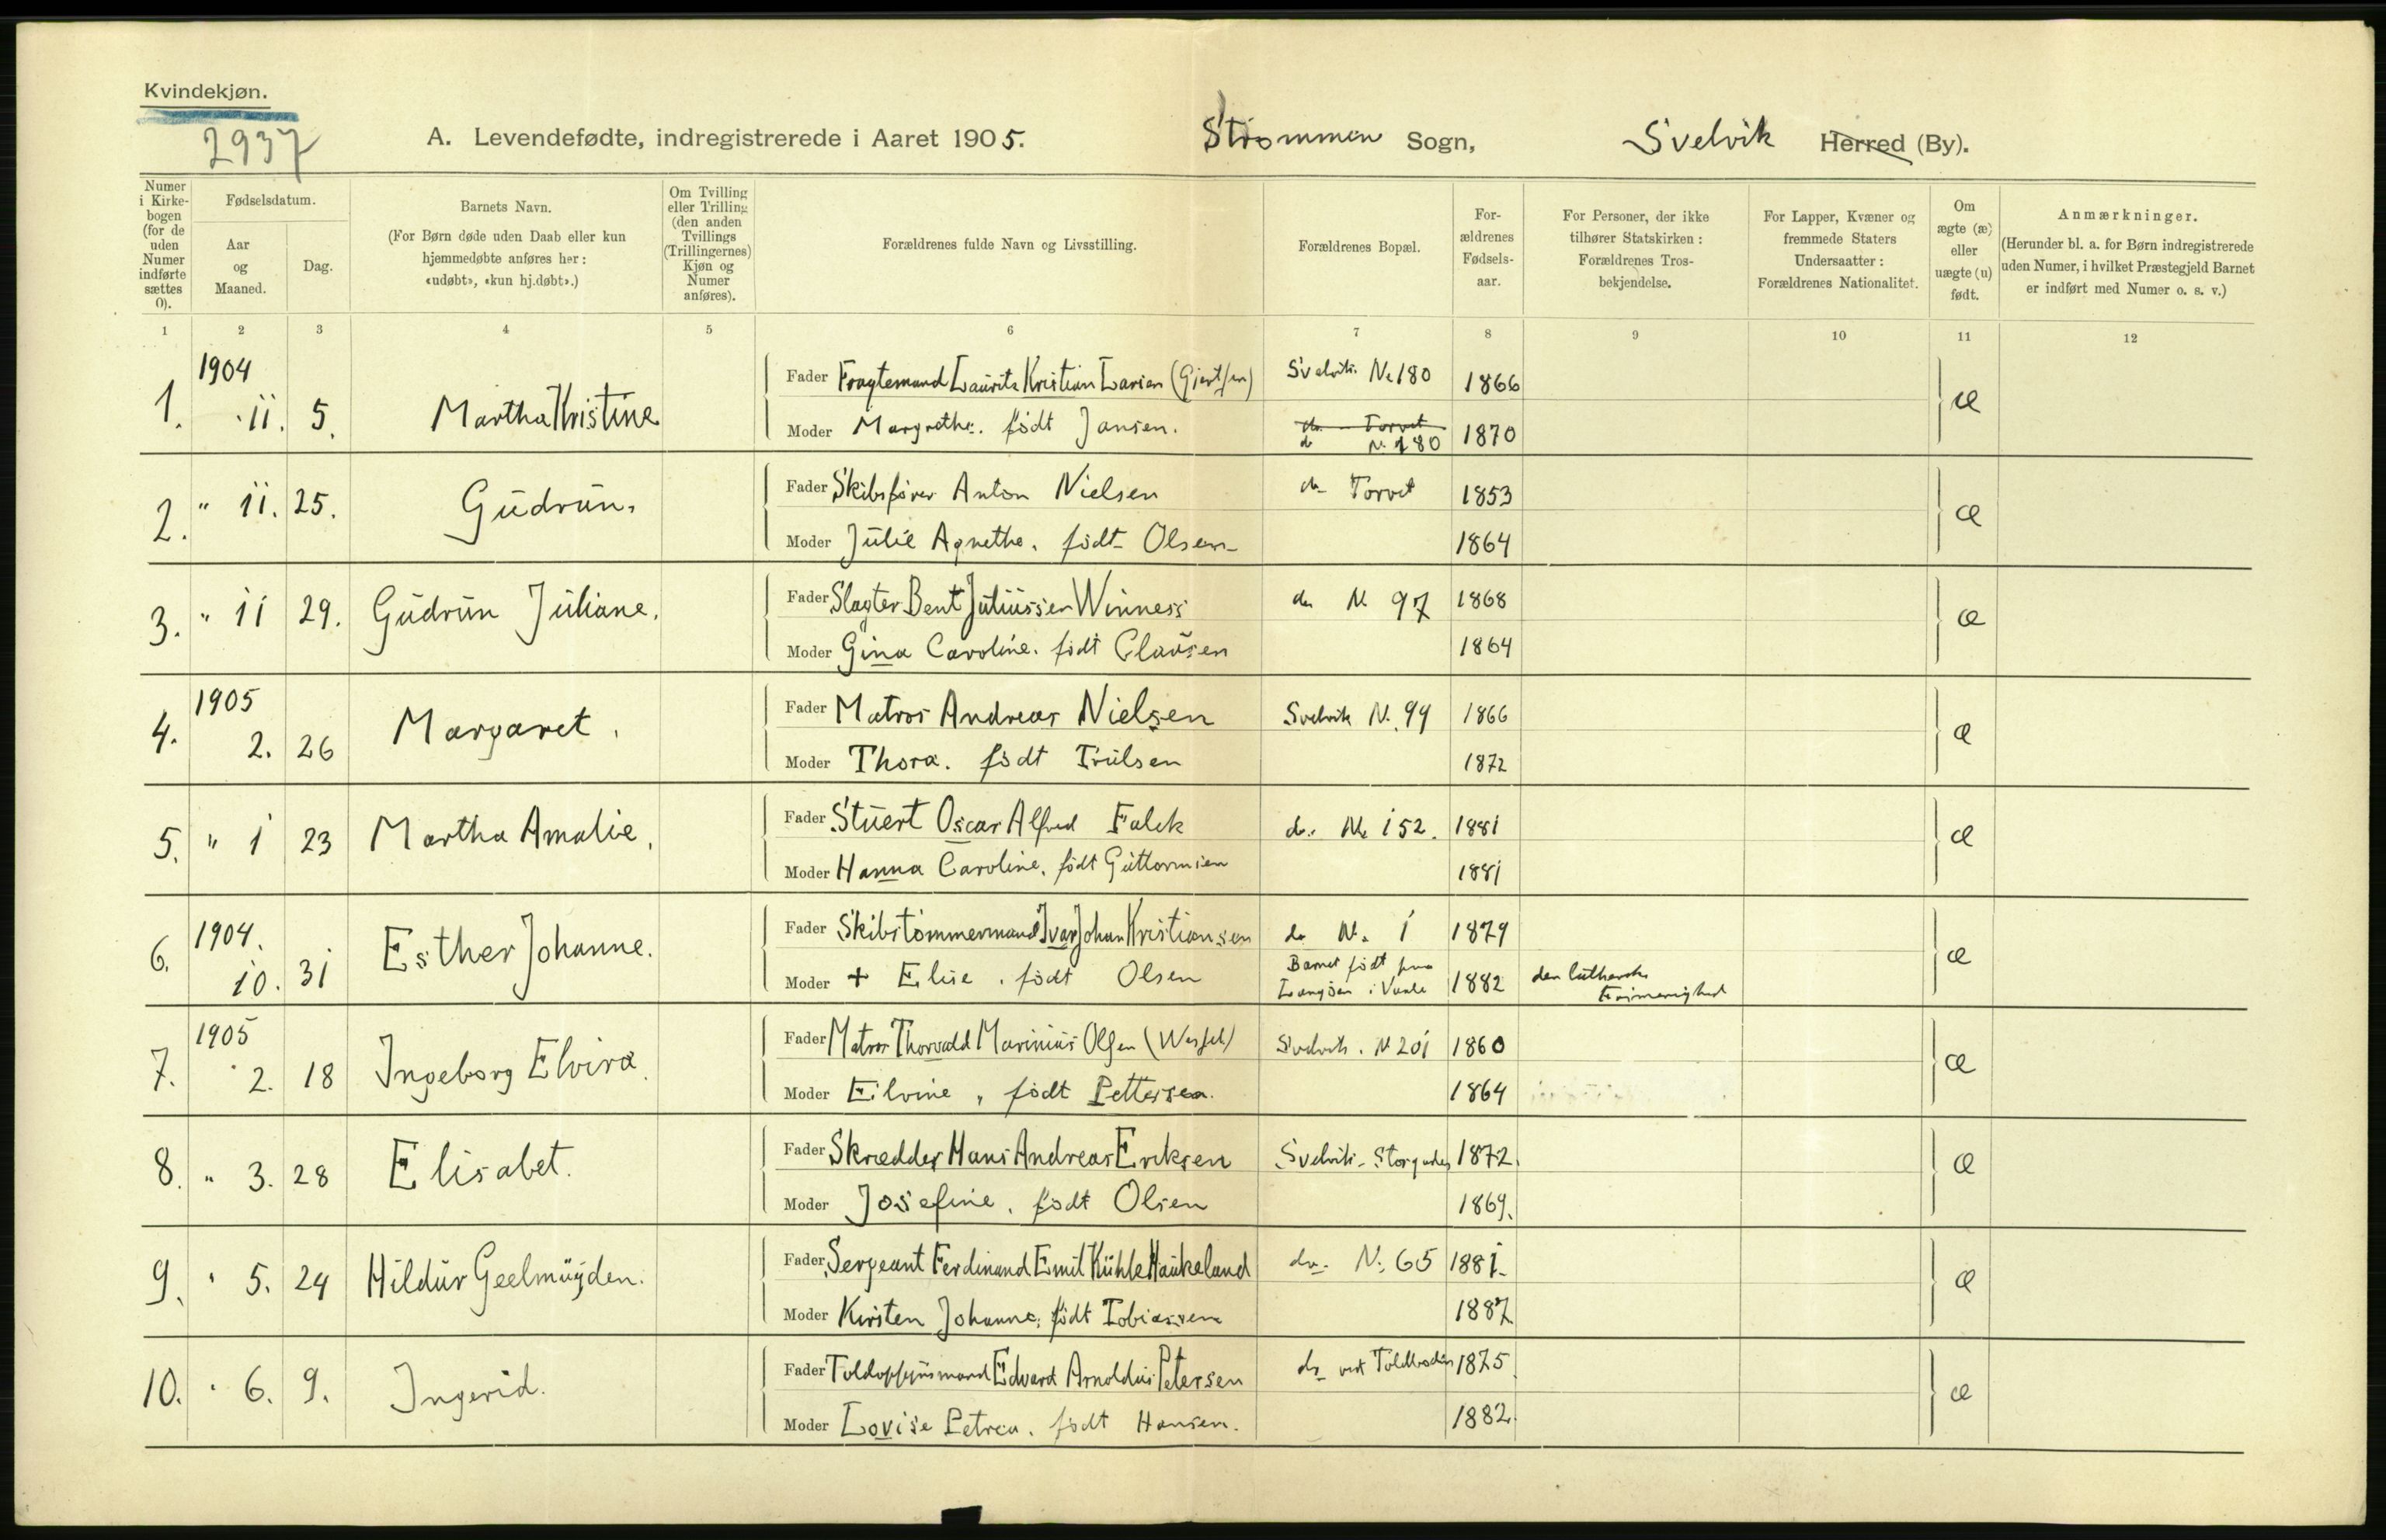 Kvindekjøn.
2937
A. Levendefødte, indregistrerede i Aaret 1905. Strømmen Sogn, Svelvik Herred (By).
Numer i Kirkebogen (for de uden Numer indførte sættes 0).
Fødselsdatum.
Aar og Maaned.
Dag.
Barnets Navn.
(For Børn døde uden Daab eller kun hjemmedøbte anføres her: «udøbt», «kun hj.døbt».)
Om Tvilling eller Trilling (den anden Tvillings (Trillingernes) Kjøn og Numer anføres).
Forældrenes fulde Navn og Livsstilling.
Forældrenes Bopæl.
Forældrenes Fødselsaar.
For Personer, der ikke tilhører Statskirken: Forældrenes Trosbekjendelse.
For Lapper, Kvæner og fremmede Staters Undersaatter: Forældrenes Nationalitet.
Om ægte (æ) eller uægte (u) født.
Anmærkninger.
(Herunder bl. a. for Børn indregistrerede uden Numer, i hvilket Præstegjeld Barnet er indført med Numer o. s. v.)
1 2 3 4 5 6 7 8 9 10 11 12
1904
1. 11. 5. Martha Kristine Fader Fragtemand Laurits Kristian Larsen (Gjertsen) Svelvik No 180 1866 æ
Moder Margrethe. født Jansen. do Torvet
do No 180 1870
2. " 11. 25. Gudrun. Fader Skibsfører Anton Nielsen do Torvet 1853 æ
Moder Julie Agnethe. født Olsen 1864
3. " 11 29. Gudrun Juliane. Fader Slagter Bent Juliussen Winness do N 97 1868 æ
Moder Gina Caroline. født Clausen 1864
1905
4. 2. 26 Margaret. Fader Matros Andreas Nielsen Svelvik N. 99 1866 æ
Moder Thora. født Trulsen 1872
5. " 1 23 Martha Amalie. Fader Stuert Oscar Alfred Falck do. No 152. 1881 æ
Moder Hanna Caroline. født Guttormsen 1881
1904.
6. 10. 31 Esther Johanne. Fader Skibstømmermand Ivar Johan Kristiansen do No. 1 1879 æ
Moder + Elise. født Olsen Barnet født paa
i Vaale 1882 den lutherske
Frimenighed
1905
7. 2. 18 Ingeborg Elvira. Fader Matros Thorvald Marinius Olsen (Wessel) Svelvik. N 201 1860 æ
Moder Elvine, født Pettersen. 1864
8. " 3. 28 Elisabet. Fader Skrædder Hans Andreas Eriksen Svelvik - Storgaden 1872. æ
Moder Josefine. født Olsen 1869.
9. " 5. 24 Hildur Geelmuyden. Fader Sergeant Ferdinand Emil Kühle Haukeland do. N. 65 1881. æ
Moder Kirsten Johanne, født Tobiassen 1887
10. " 6. 9. Ingerid. Fader Toldopsynsmand Edvard Arnoldus Petersen do ved Toldboden 1875. æ
Moder Lovise Petrea. født Hansen. 1882.